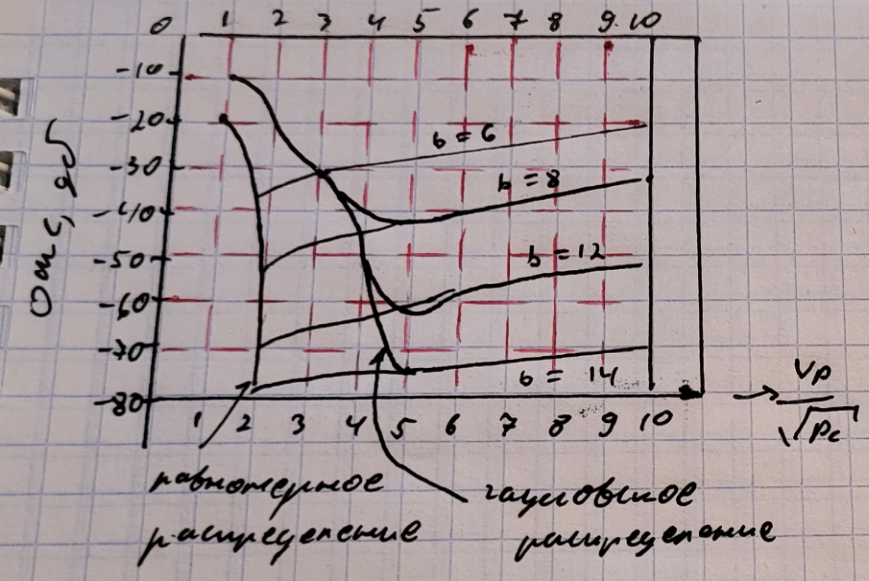 0 1 2 3 4 5 6 7 8 9 10
-10
-20
-30
-40
-50
-60
-70
-80
b = 6
b = 8
b = 12
b = 14
1 2 3 4 5 6 7 8 9 10
Vp
√Pc
равномерное
распределение
гауссовское
распределение